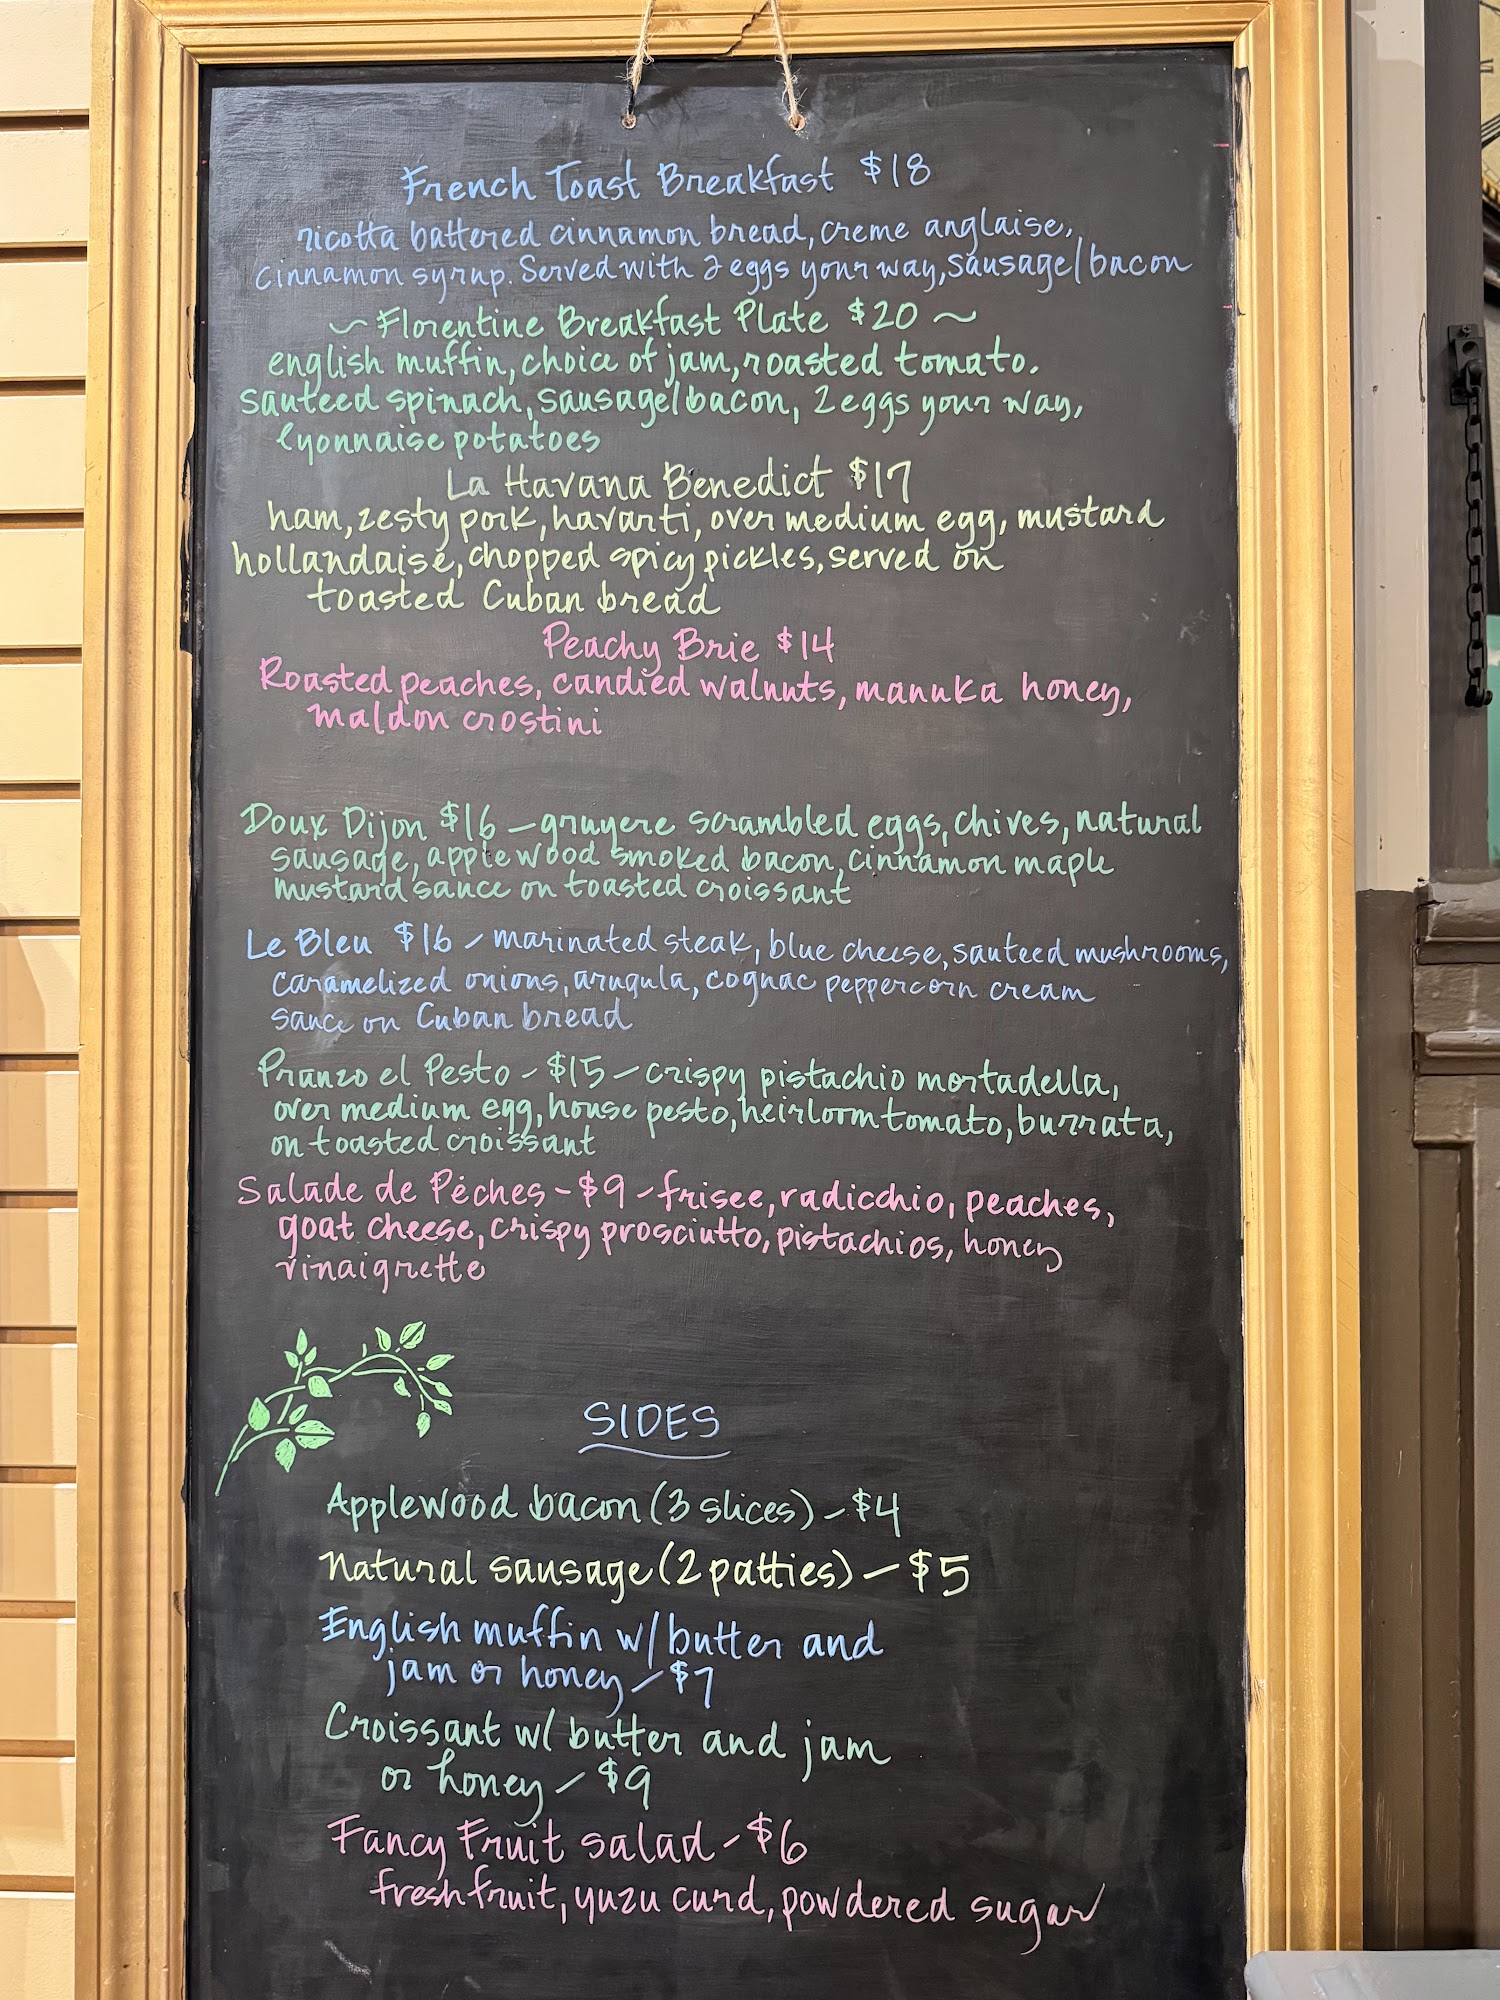 French Toast Breakfast $18
ricotta battered cinnamon bread, creme anglaise,
cinnamon syrup. Served with 2 eggs your way, sausage/bacon
~ Florentine Breakfast Plate $20 ~
english muffin, choice of jam, roasted tomato.
sauteed spinach, sausage/bacon, 2 eggs your way,
lyonnaise potatoes
La Havana Benedict $17
ham, zesty pork, havarti, over medium egg, mustard
hollandaise, chopped spicy pickles, served on
toasted Cuban bread
Peachy Brie $14
Roasted peaches, candied walnuts, manuka honey,
maldon crostini
Doux Dijon $16 - gruyere scrambled eggs, chives, natural
sausage, applewood smoked bacon, cinnamon maple
mustard sauce on toasted croissant
Le Bleu $16 - marinated steak, blue cheese, sauteed mushrooms,
caramelized onions, arugula, cognac peppercorn cream
sauce on Cuban bread
Pranzo el Pesto - $15 - crispy pistachio mortadella,
over medium egg, house pesto, heirloom tomato, burrata,
on toasted croissant
Salade de Pêches - $9 - frisee, radicchio, peaches,
goat cheese, crispy prosciutto, pistachios, honey
vinaigrette
SIDES
Applewood bacon (3 slices) - $4
Natural sausage (2 patties) - $5
English muffin w/ butter and
jam or honey - $7
Croissant w/ butter and jam
or honey - $9
Fancy Fruit salad - $6
fresh fruit, yuzu curd, powdered sugar